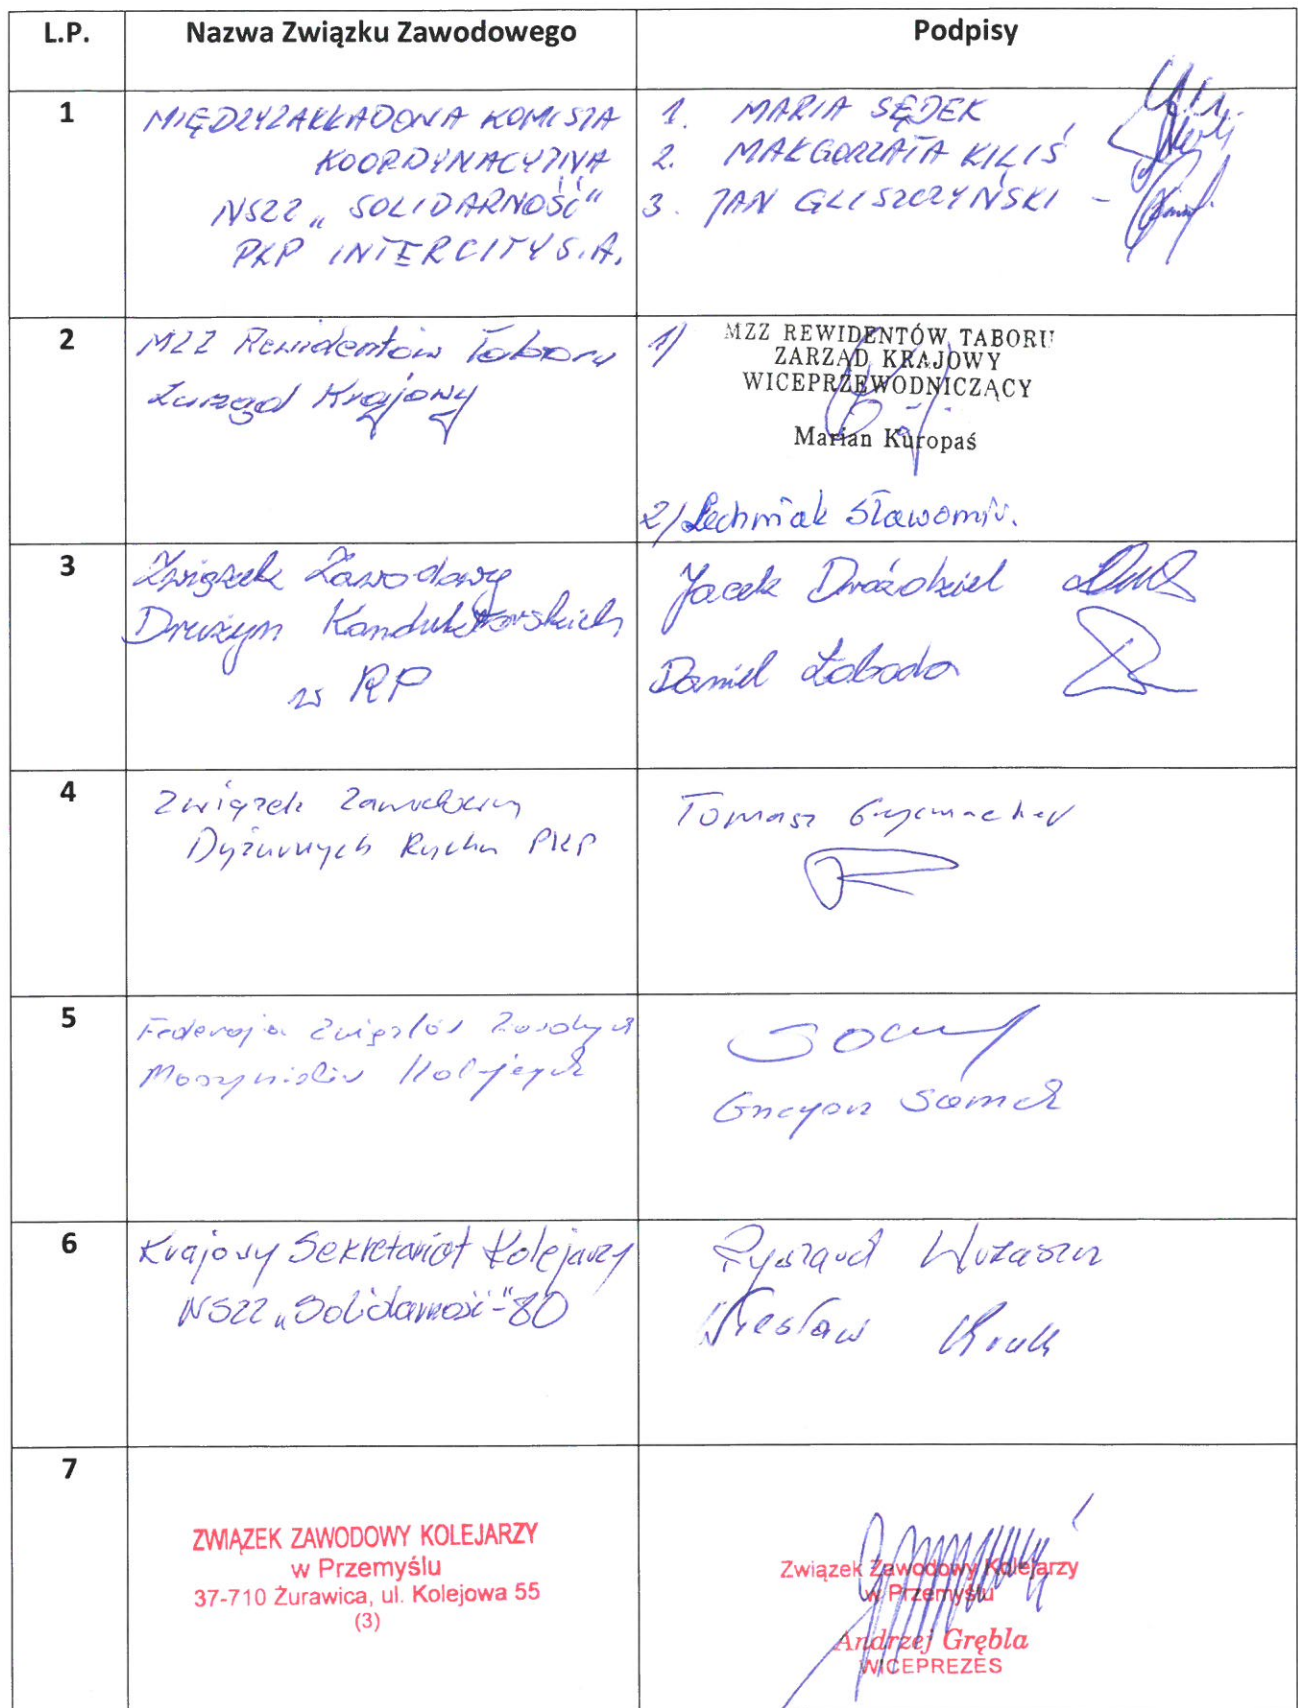 L.P. Nazwa Związku Zawodowego Podpisy
1
MIĘDZYZAKŁADOWA KOMISJA
KOORDYNACYJNA
NSZZ „SOLIDARNOŚĆ"
PKP INTERCITY S.A.
1. MARIA SĘDEK
2. MAŁGORZATA KILIŚ
3. JAN GLISZCZYŃSKI -
2
MZZ Rewidentów Taboru
Zarząd Krajowy
1/ MZZ REWIDENTÓW TABORU
ZARZĄD KRAJOWY
WICEPRZEWODNICZĄCY
Marian Kuropaś
2/ Lechniak Sławomir.
3
Związek Zawodowy
Drużyn Konduktorskich
w RP
Jacek Droździel
Daniel Łaboda
4
Związek Zawodowy
Dyżurnych Ruchu PKP
Tomasz
5
Federacja Związków Zawodowych
Maszynistów Kolejowych
Grzegorz Samek
6
Krajowy Sekretariat Kolejarzy
NSZZ „Solidarność"-80
Ryszard
Wiesław Kruk
7
ZWIĄZEK ZAWODOWY KOLEJARZY
w Przemyślu
37-710 Żurawica, ul. Kolejowa 55
(3)
Związek Zawodowy Kolejarzy
w Przemyślu
Andrzej Grębla
WICEPREZES